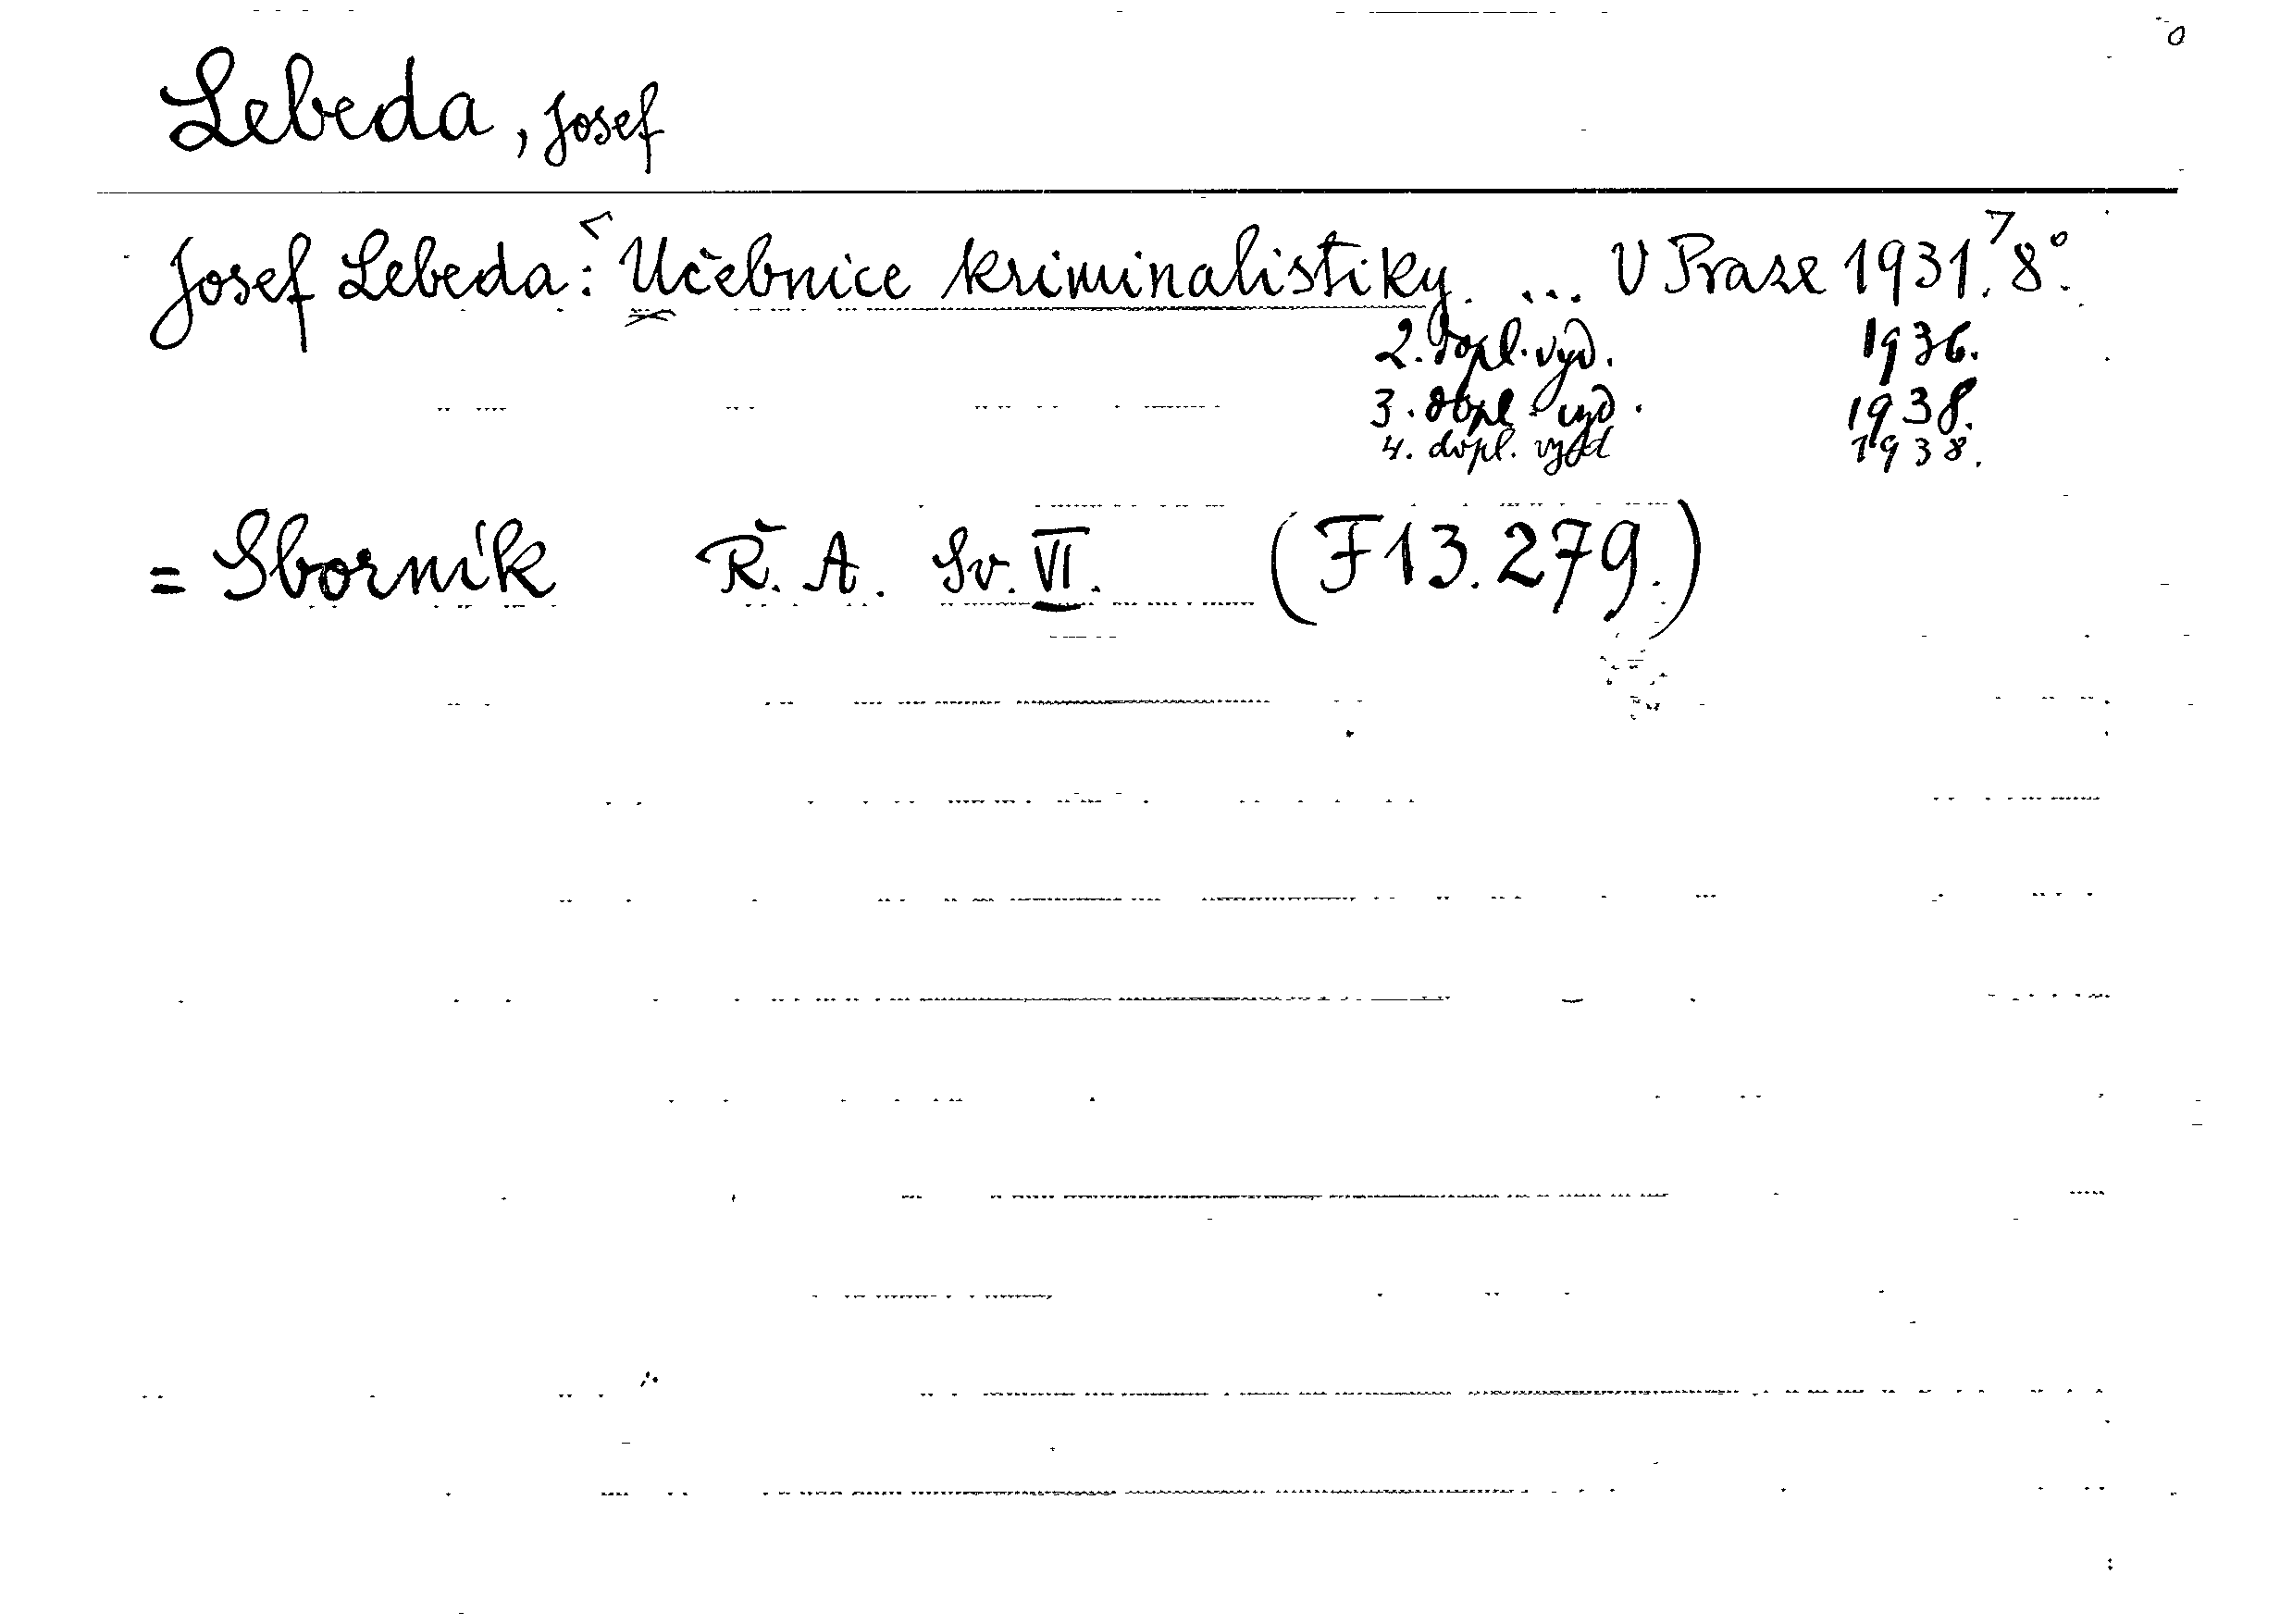 Lebeda, Josef
Josef Lebeda: <Učebnice kriminalistiky. ... V Praze 1931.> 8°.
2. dopl. vyd. 1936.
3. dopl. vyd. 1938.
4. dopl. vyd 1938.
= Sborník Ř. A. Sv. VI. (F13.279.)